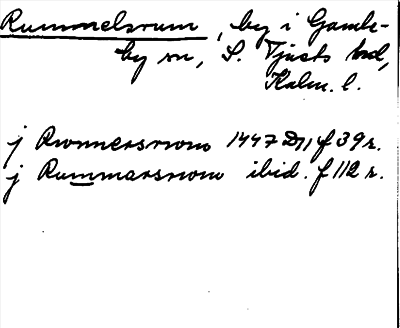 Rummelsrum, by i Gamle-
by sn, S. Tjusts hd,
Kalm. l.
j Rwmersrwm 1447 D11 f 39 r.
j Rummarsrwm ibid. f 112 r.